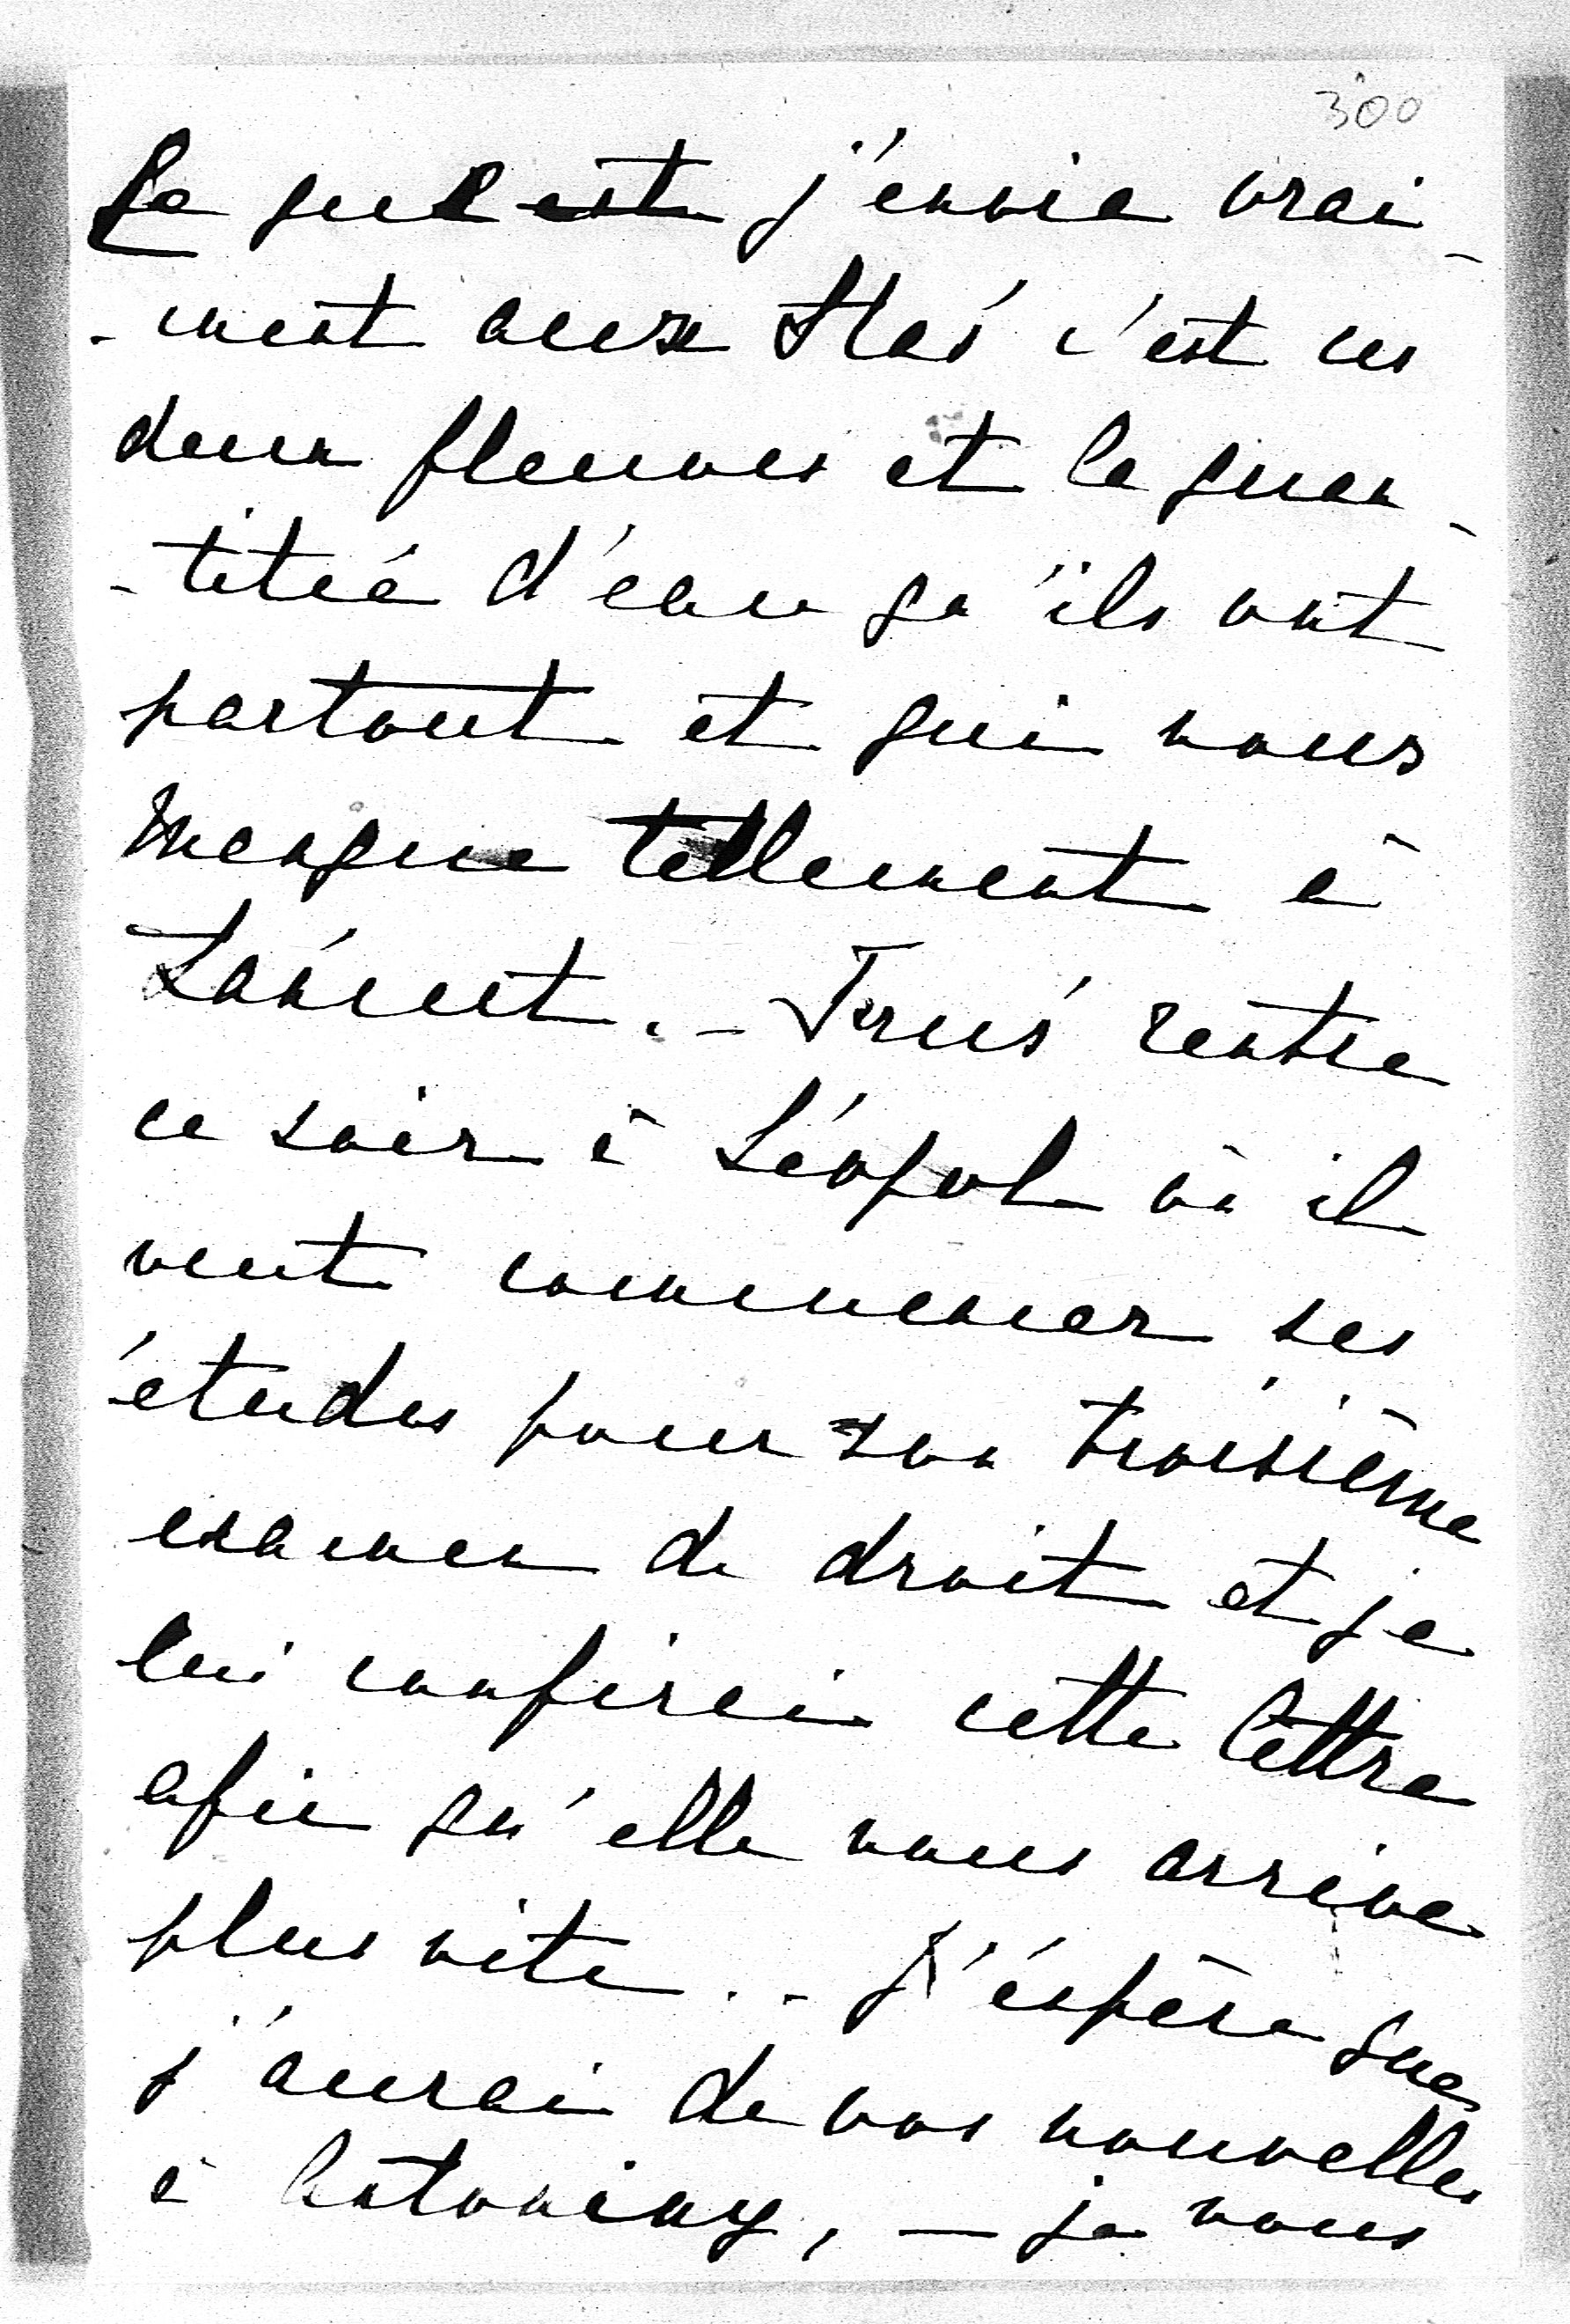 300
Ce que est j'envie vrai-
-ment aux Stas' c'est ces
deux fleuves et la quan-
-titié d'eau qu'ils ont
partout et qui nous
manque tellement à
Łańcut. - Jruś rentre
ce soir à Léopol où il
veut commencer ses
études pour son troisième
examen de droit et je
lui confirai cette lettre
afin qu'elle vous arrive
plus vite. - J'éspère que
j'aurai de vos nouvelles
à Antoniny, - je vous